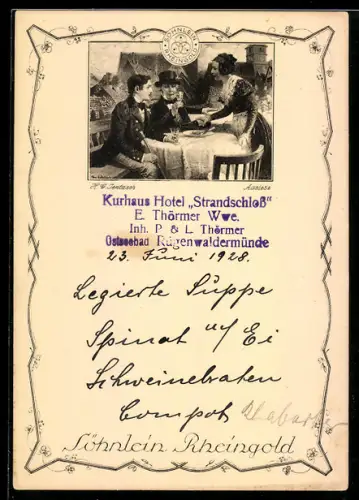 SÖHNLEIN
RHEINGOLD
Kurhaus Hotel „Strandschloß"
E. Thörmer Wwe.
Inh. P & L Thörmer
Ostseebad Rügenwaldermünde
23. Juni 1928.
Legierte Suppe
Spinat u/ Ei
Schweinebraten
Compot Rhabarber
Söhnlein Rheingold